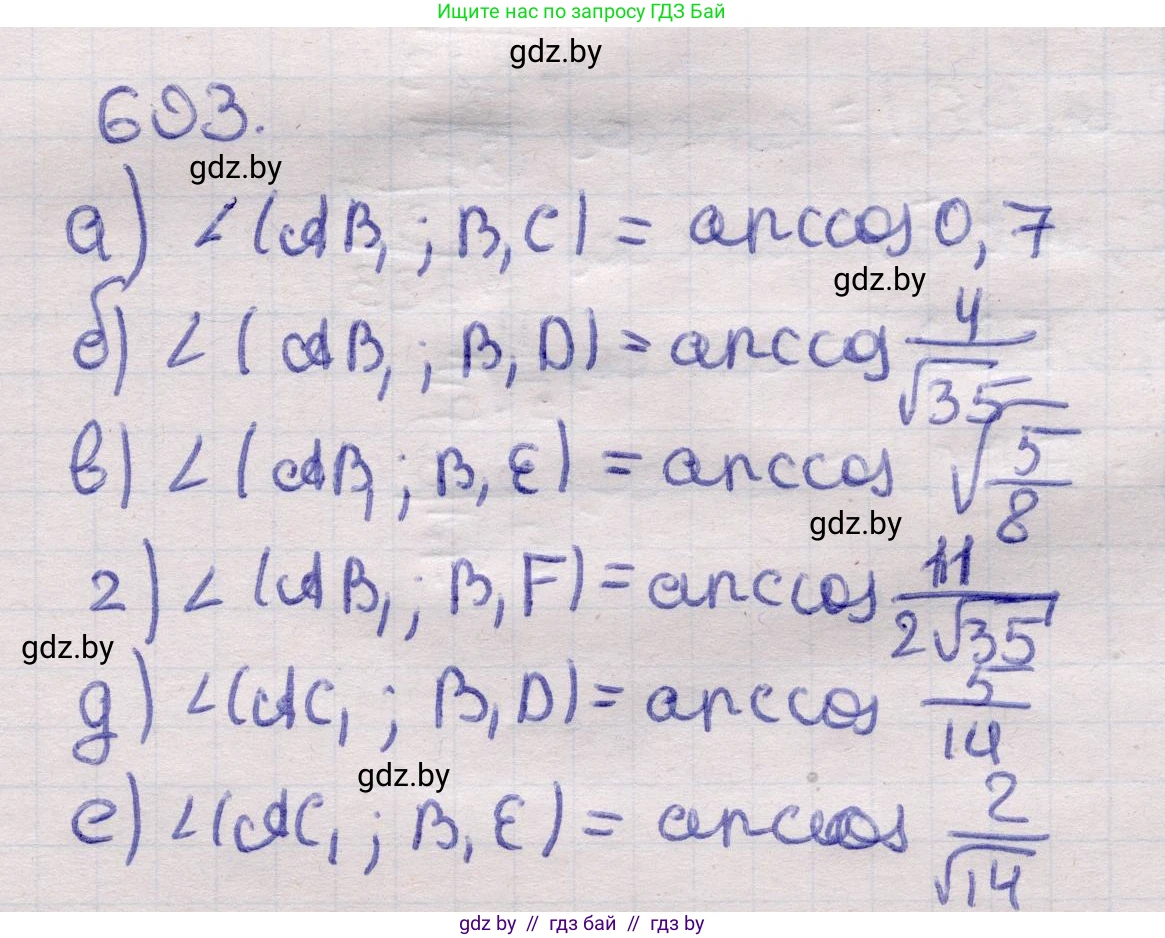 Ищите нас по запросу ГДЗ Бай
gdz.by
603.
gdz.by
а) ∠(AB₁; B₁C) = arccos 0,7
gdz.by
б) ∠(AB₁; B₁D) = arccos 4/√35
в) ∠(AB₁; B₁E) = arccos √(5/8)
gdz.by
г) ∠(AB₁; B₁F) = arccos 11/(2√35)
gdz.by
д) ∠(AC₁; B₁D) = arccos 5/14
gdz.by
е) ∠(AC₁; B₁E) = arccos 2/√14
gdz by // гдз бай // гдз by